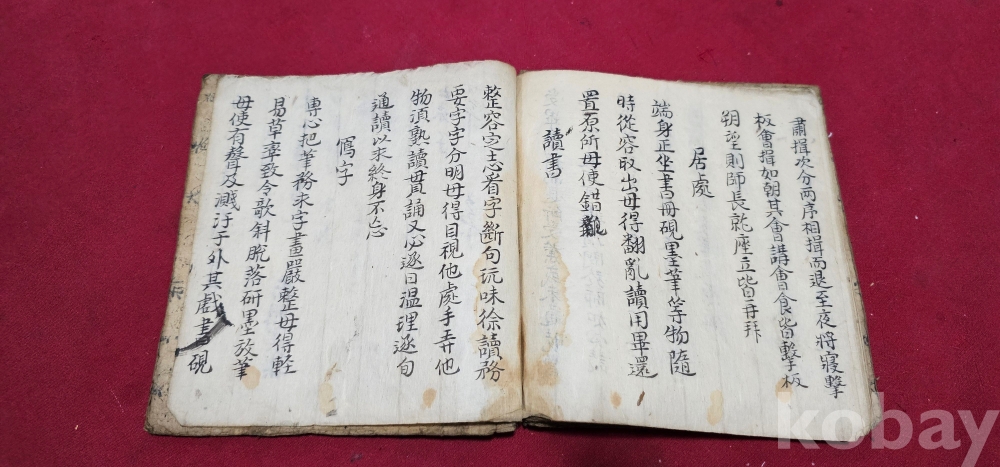 肅揖次分兩序相揖而退至夜將寢擊
板會揖如朝其會講會食皆擊板
朔望則師長就座立皆再拜
居處
端身正坐書冊硯墨筆等物隨
時從容取出毋得翻亂讀用畢還
置原所毋使錯亂
讀書
整容定志看字斷句玩味徐讀務
要字字分明毋得目視他處手弄他
物須熟讀毋貫誦又必逐日温理逐旬
通讀以求終身不忘
寫字
專心把筆務求字畫嚴整毋得軽
易草率致令欹斜脫落研墨放筆
毋使有聲及濺汙于外其戲書硯
kobay